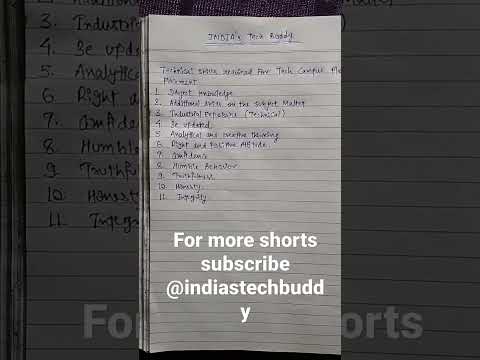 INDIA's Tech Buddy
Technical skills required For Tech Campus
Placement
1. Subject knowledge
2. Additional skills on the subject Matter
3. Industrial Exposure (Technical)
4. Be updated
5. Analytical and creative thinking
6. Right and Positive Attitude
7. Confidence
8. Humble Behavior
9. Truthfulness
10. Honesty
11. Integrity
For more shorts
subscribe
@indiastechbudd
y
3. Industri
4. Be
5. Analytical
6. Right and
7. Confidenc
8. Humble
9. Truthfu
10. Honest
11. Integr
For more shorts